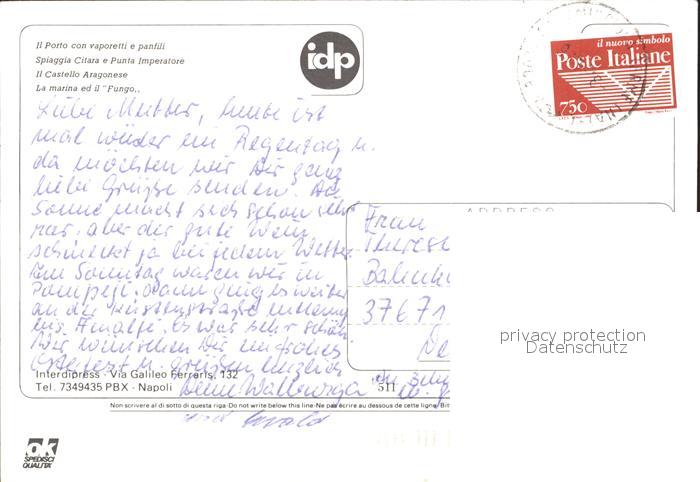 Il Porto con vaporetti e panfili
Spiaggia Citara e Punta Imperatore
Il Castello Aragonese
La marina ed il "Fungo,,
idp
il nuovo simbolo
Poste Italiane
750
Liebe Mutter, heute ist
mal wieder ein Regentag u.
da möchten wir Dir ganz
liebe Grüße senden. Die
Sonne macht sich schon sehr
rar, aber der gute Wein
schmeckt ja bei jedem Wetter.
Am Sonntag waren wir in
Pompeji. Dann ging es weiter
an der Küstenstraße entlang
bis Amalfi. Es war sehr schön
Wir wünschen Dir ein frohes
Osterfest u. grüßen herzlich
Deine Walburga
und Ewald
ADDRESS
Frau
Therese
37671
De
privacy protection
Datenschutz
Interdipress - Via Galileo Ferraris, 132
Tel. 7349435 PBX - Napoli
511
Non scrivere al di sotto di questa riga-Do not write below this line-Ne pas écrire au dessous de cette ligne-Bit
ok
SPEDISCI
QUALITÀ